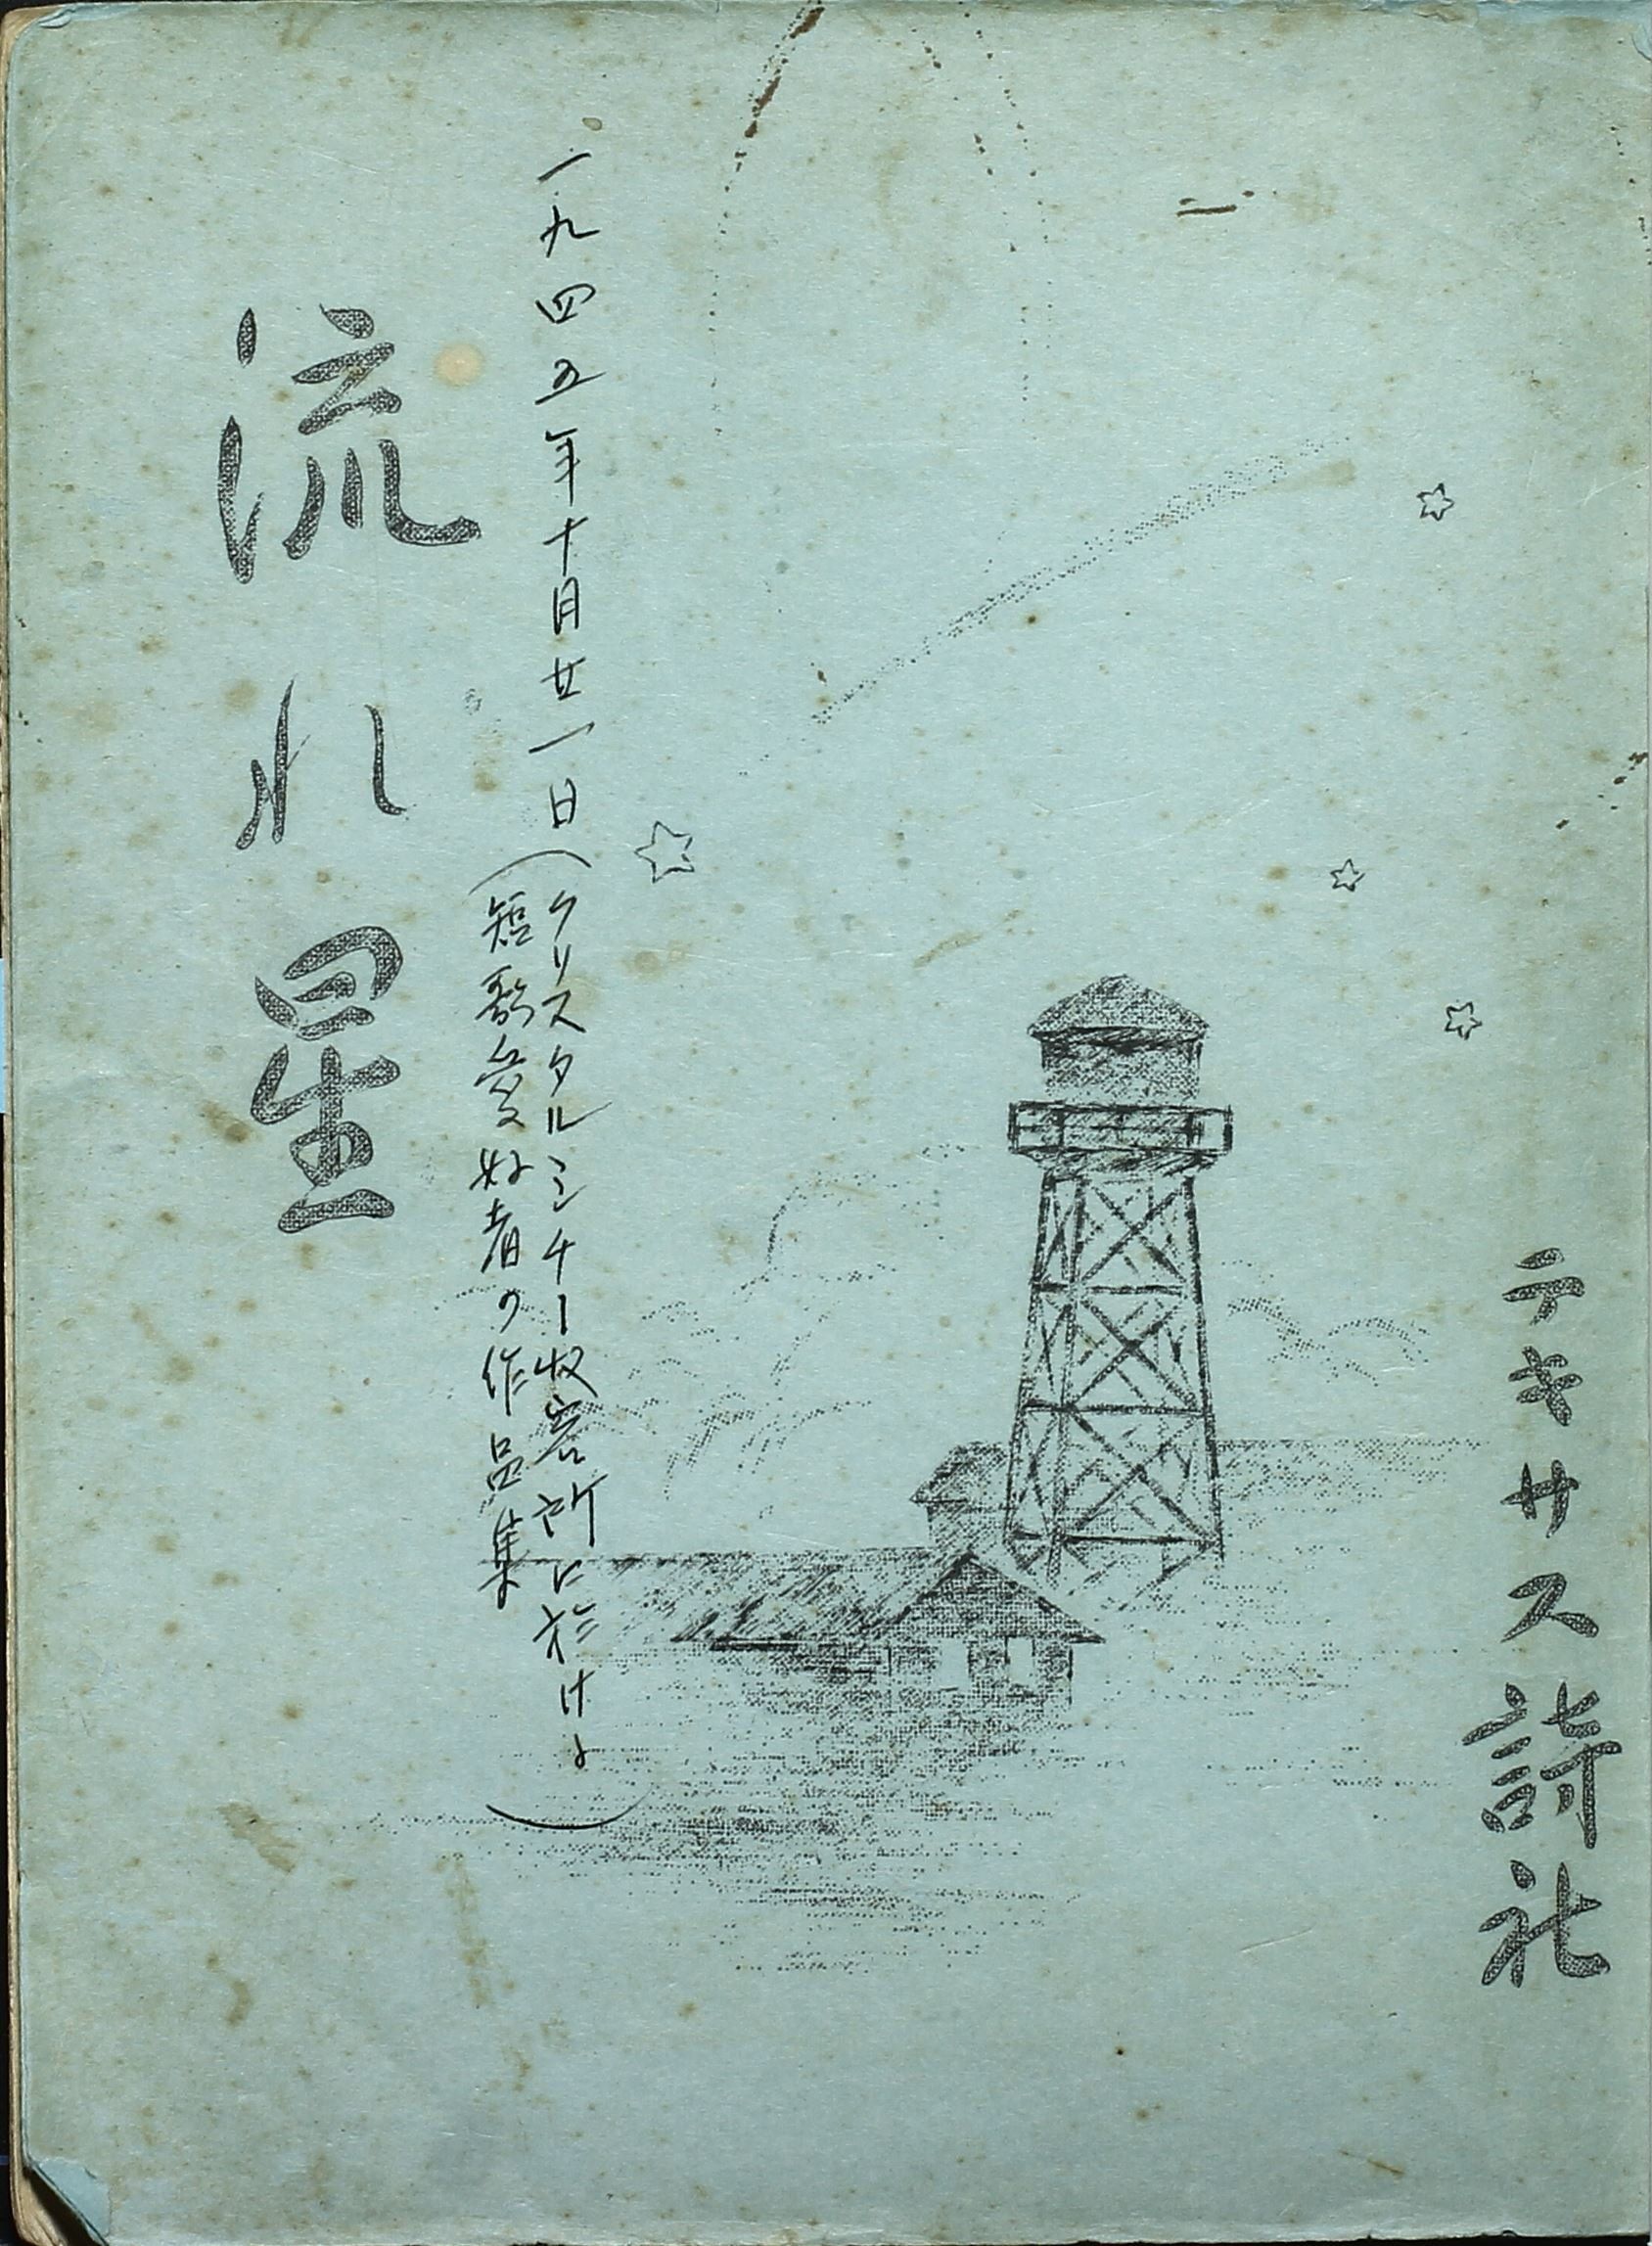 テキサス詩社
一九四五年十月廿一日
(クリスタルシチー収容所に於ける
短歌愛好者の作品集)
流れ星